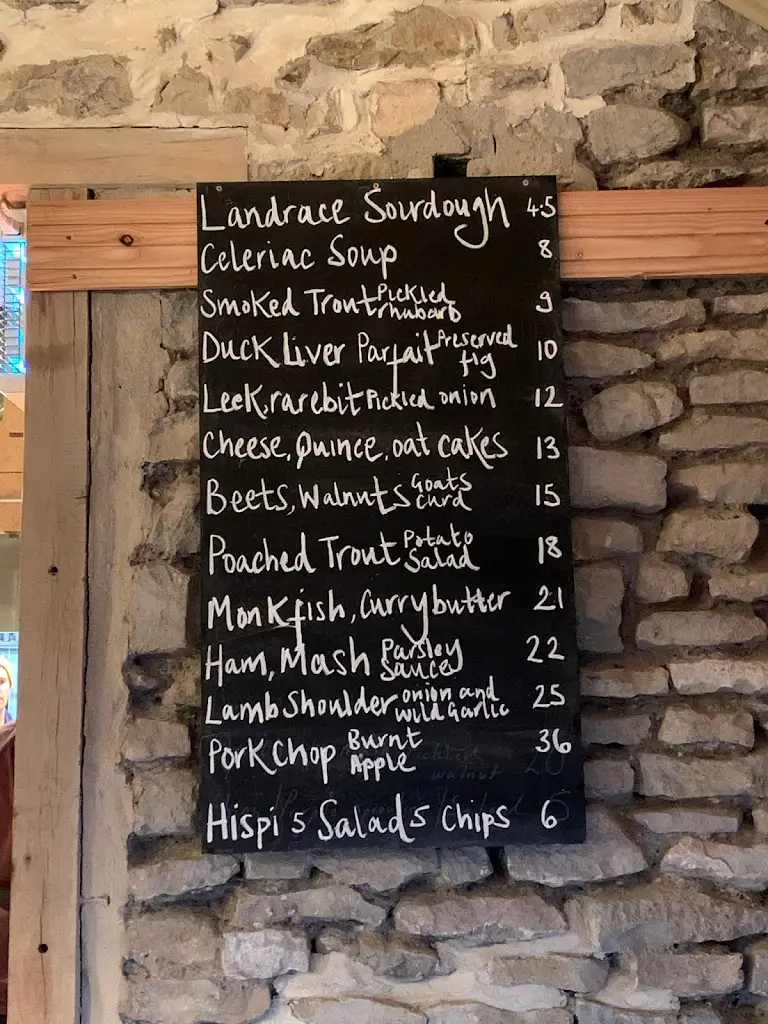 Landrace Sourdough 4.5
Celeriac Soup 8
Smoked Trout Pickled rhubarb 9
Duck Liver Parfait Preserved fig 10
Leek, rarebit Pickled onion 12
Cheese, Quince, oat cakes 13
Beets, Walnuts Goats Curd 15
Poached Trout Potato Salad 18
Monkfish, Curry butter 21
Ham, Mash Parsley Sauce 22
Lamb Shoulder onion and wild Garlic 25
Pork Chop Burnt Apple 36
Hispi 5 Salad 5 Chips 6